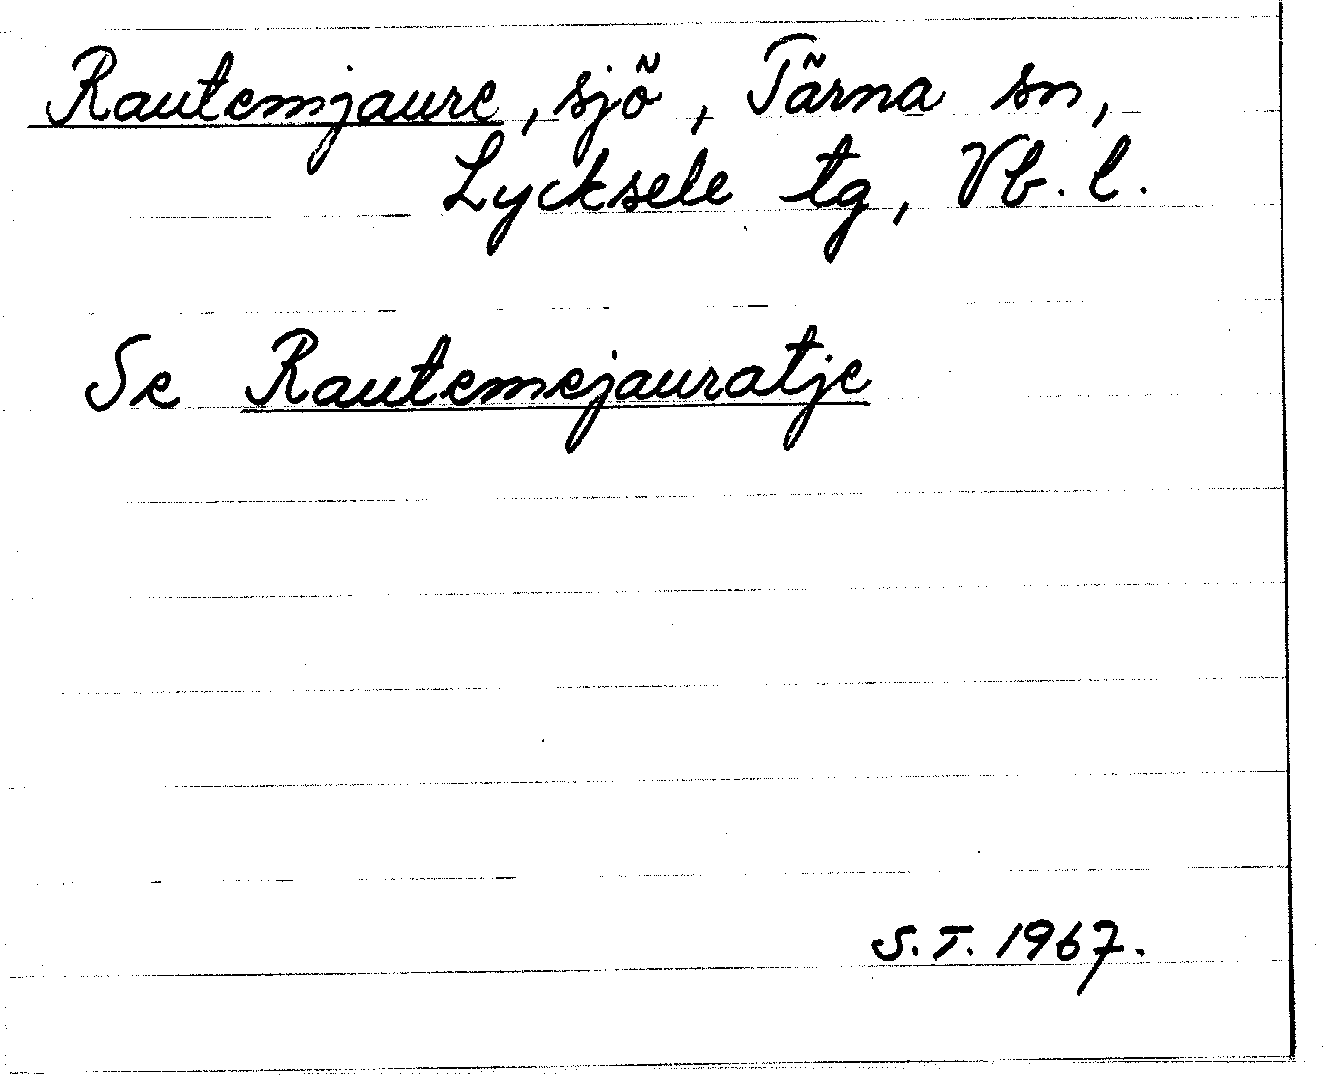 Rautemjaure, sjö, Tärna sn,
Lycksele tg, Vb. l.
Se Rautemejauratje
S.T. 1967.